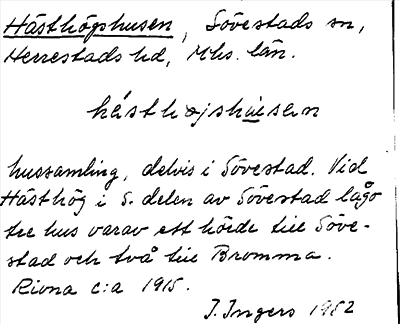 Hästhögshusen, Sövestads sn,
Herrestads hd, Mhs. län.
hussamling, delvis i Sövestad. Vid
Hästhög i S. delen av Sövestad lågo
tre hus varav ett hörde till Söve-
stad och två till Bromma.
Rivna c:a 1915.
J. Ingers 1982